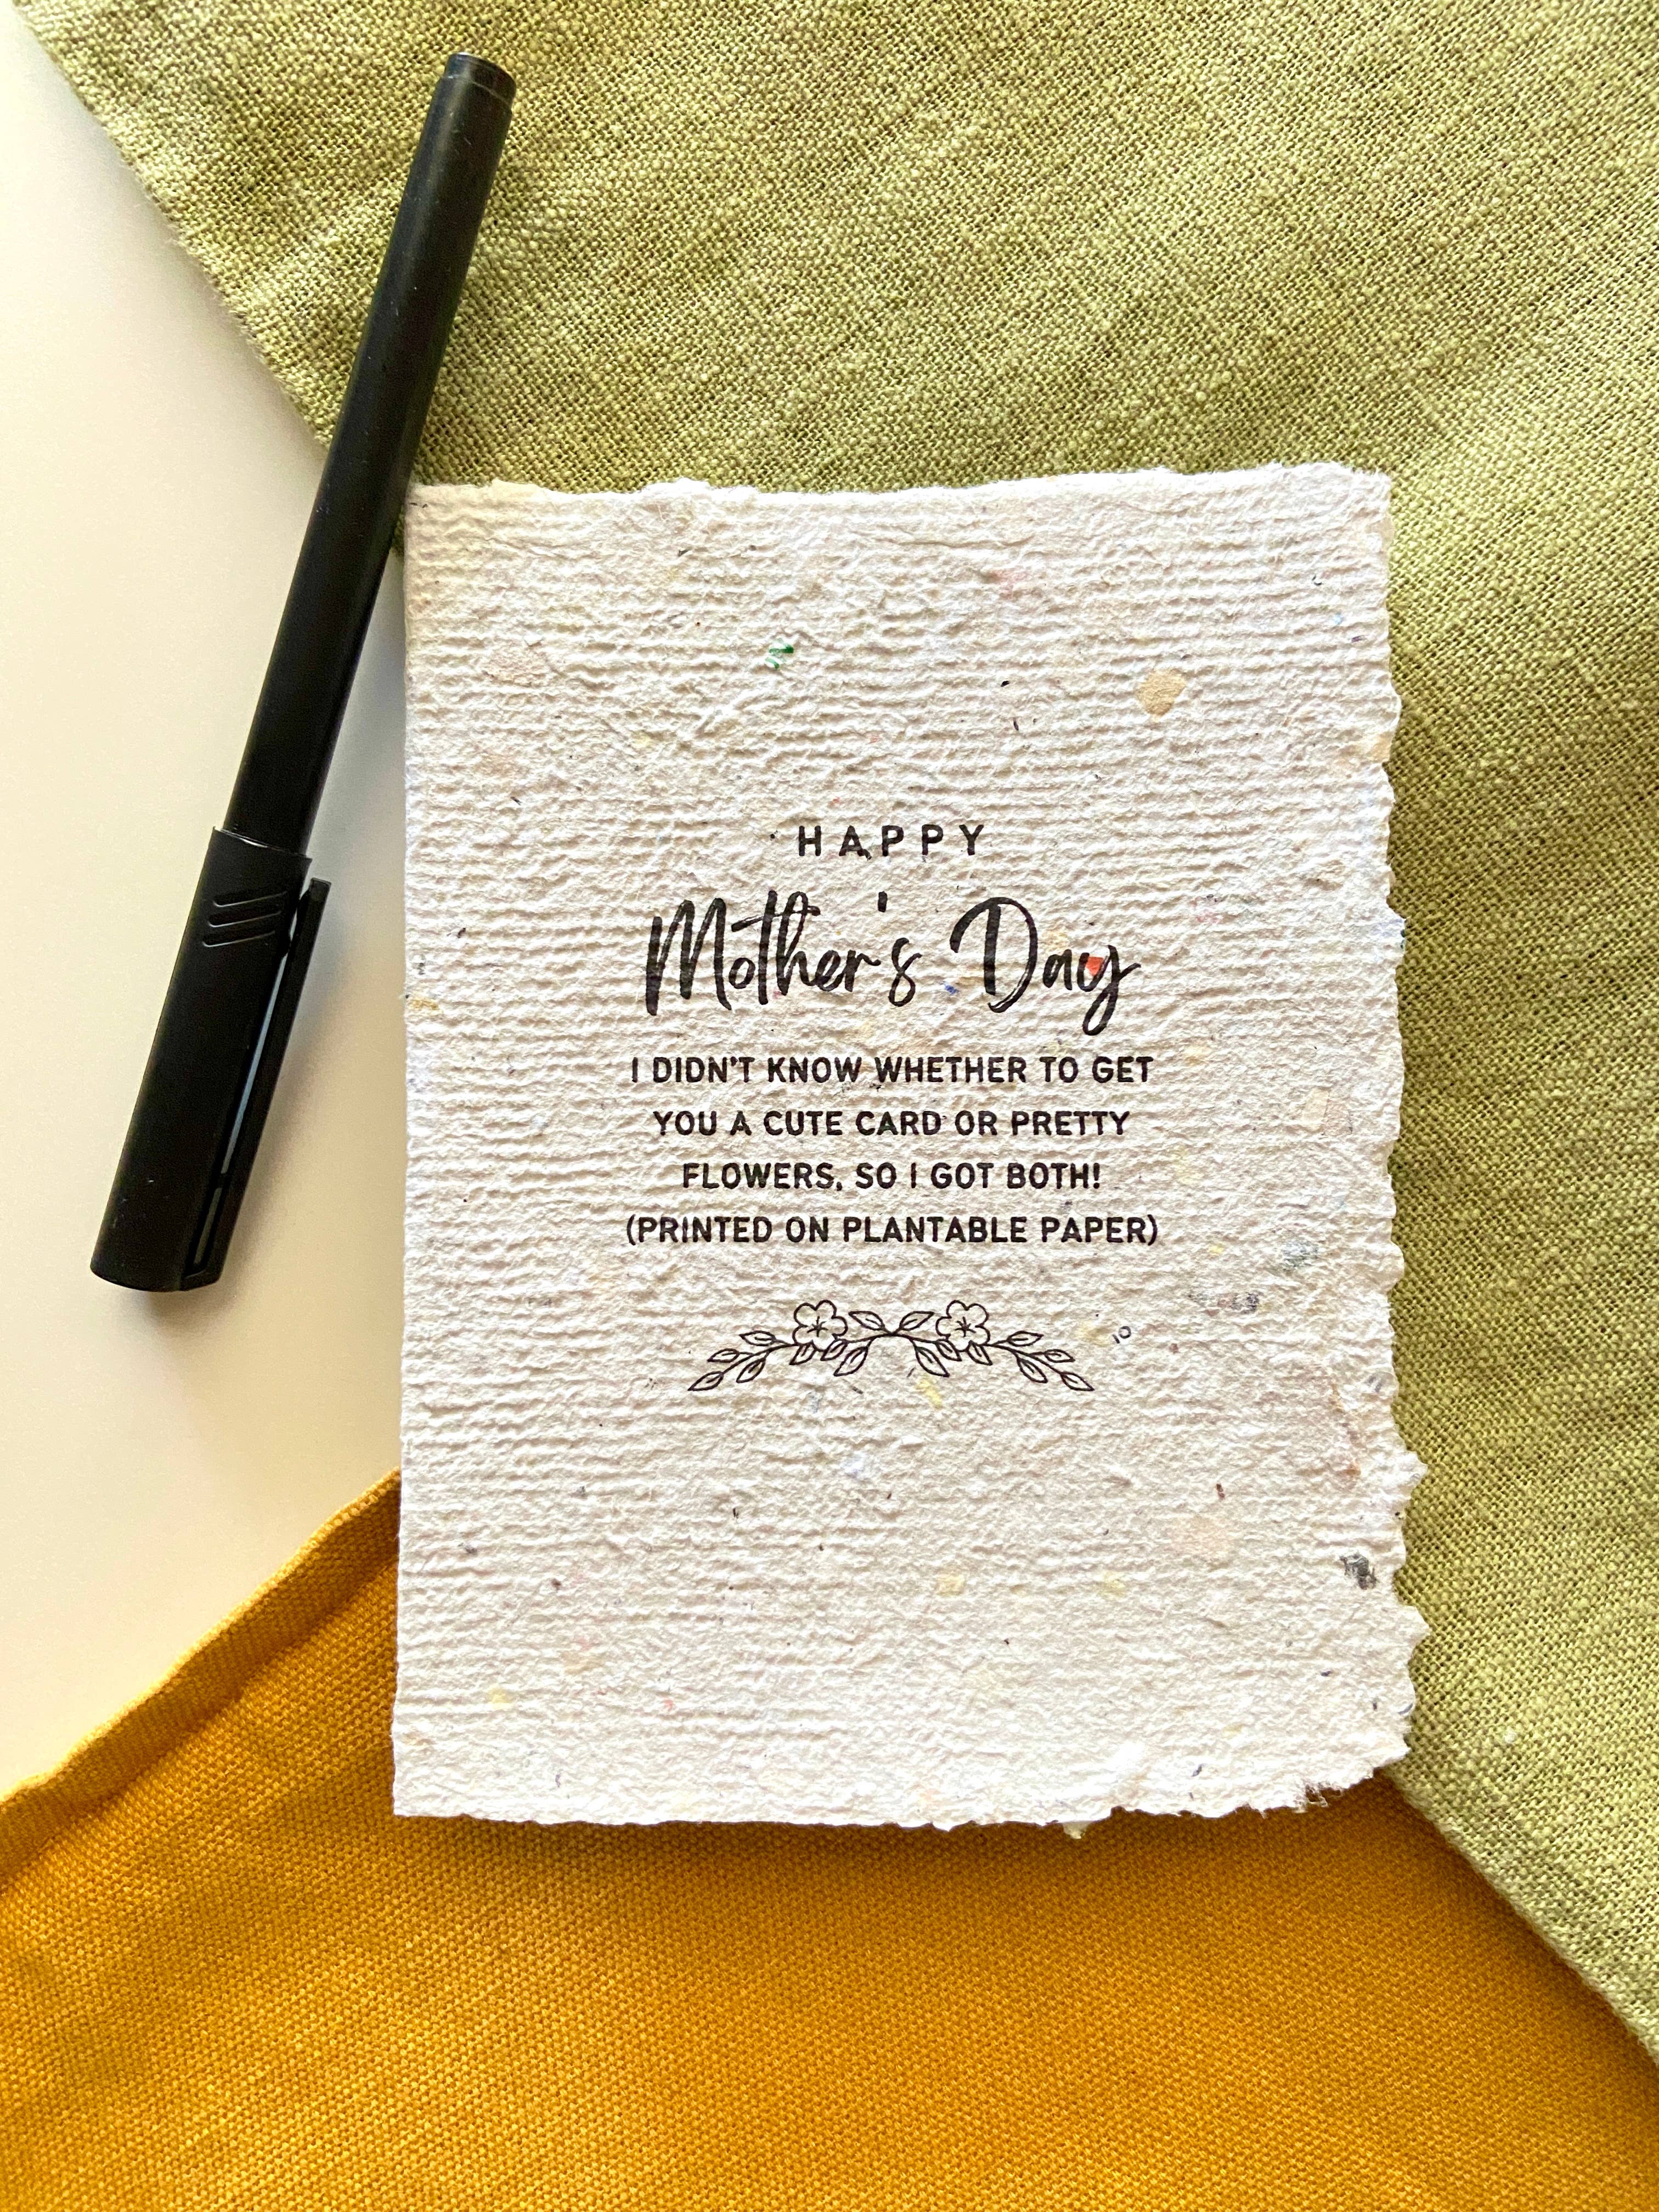 HAPPY
Mother's Day
I DIDN'T KNOW WHETHER TO GET
YOU A CUTE CARD OR PRETTY
FLOWERS, SO I GOT BOTH!
(PRINTED ON PLANTABLE PAPER)